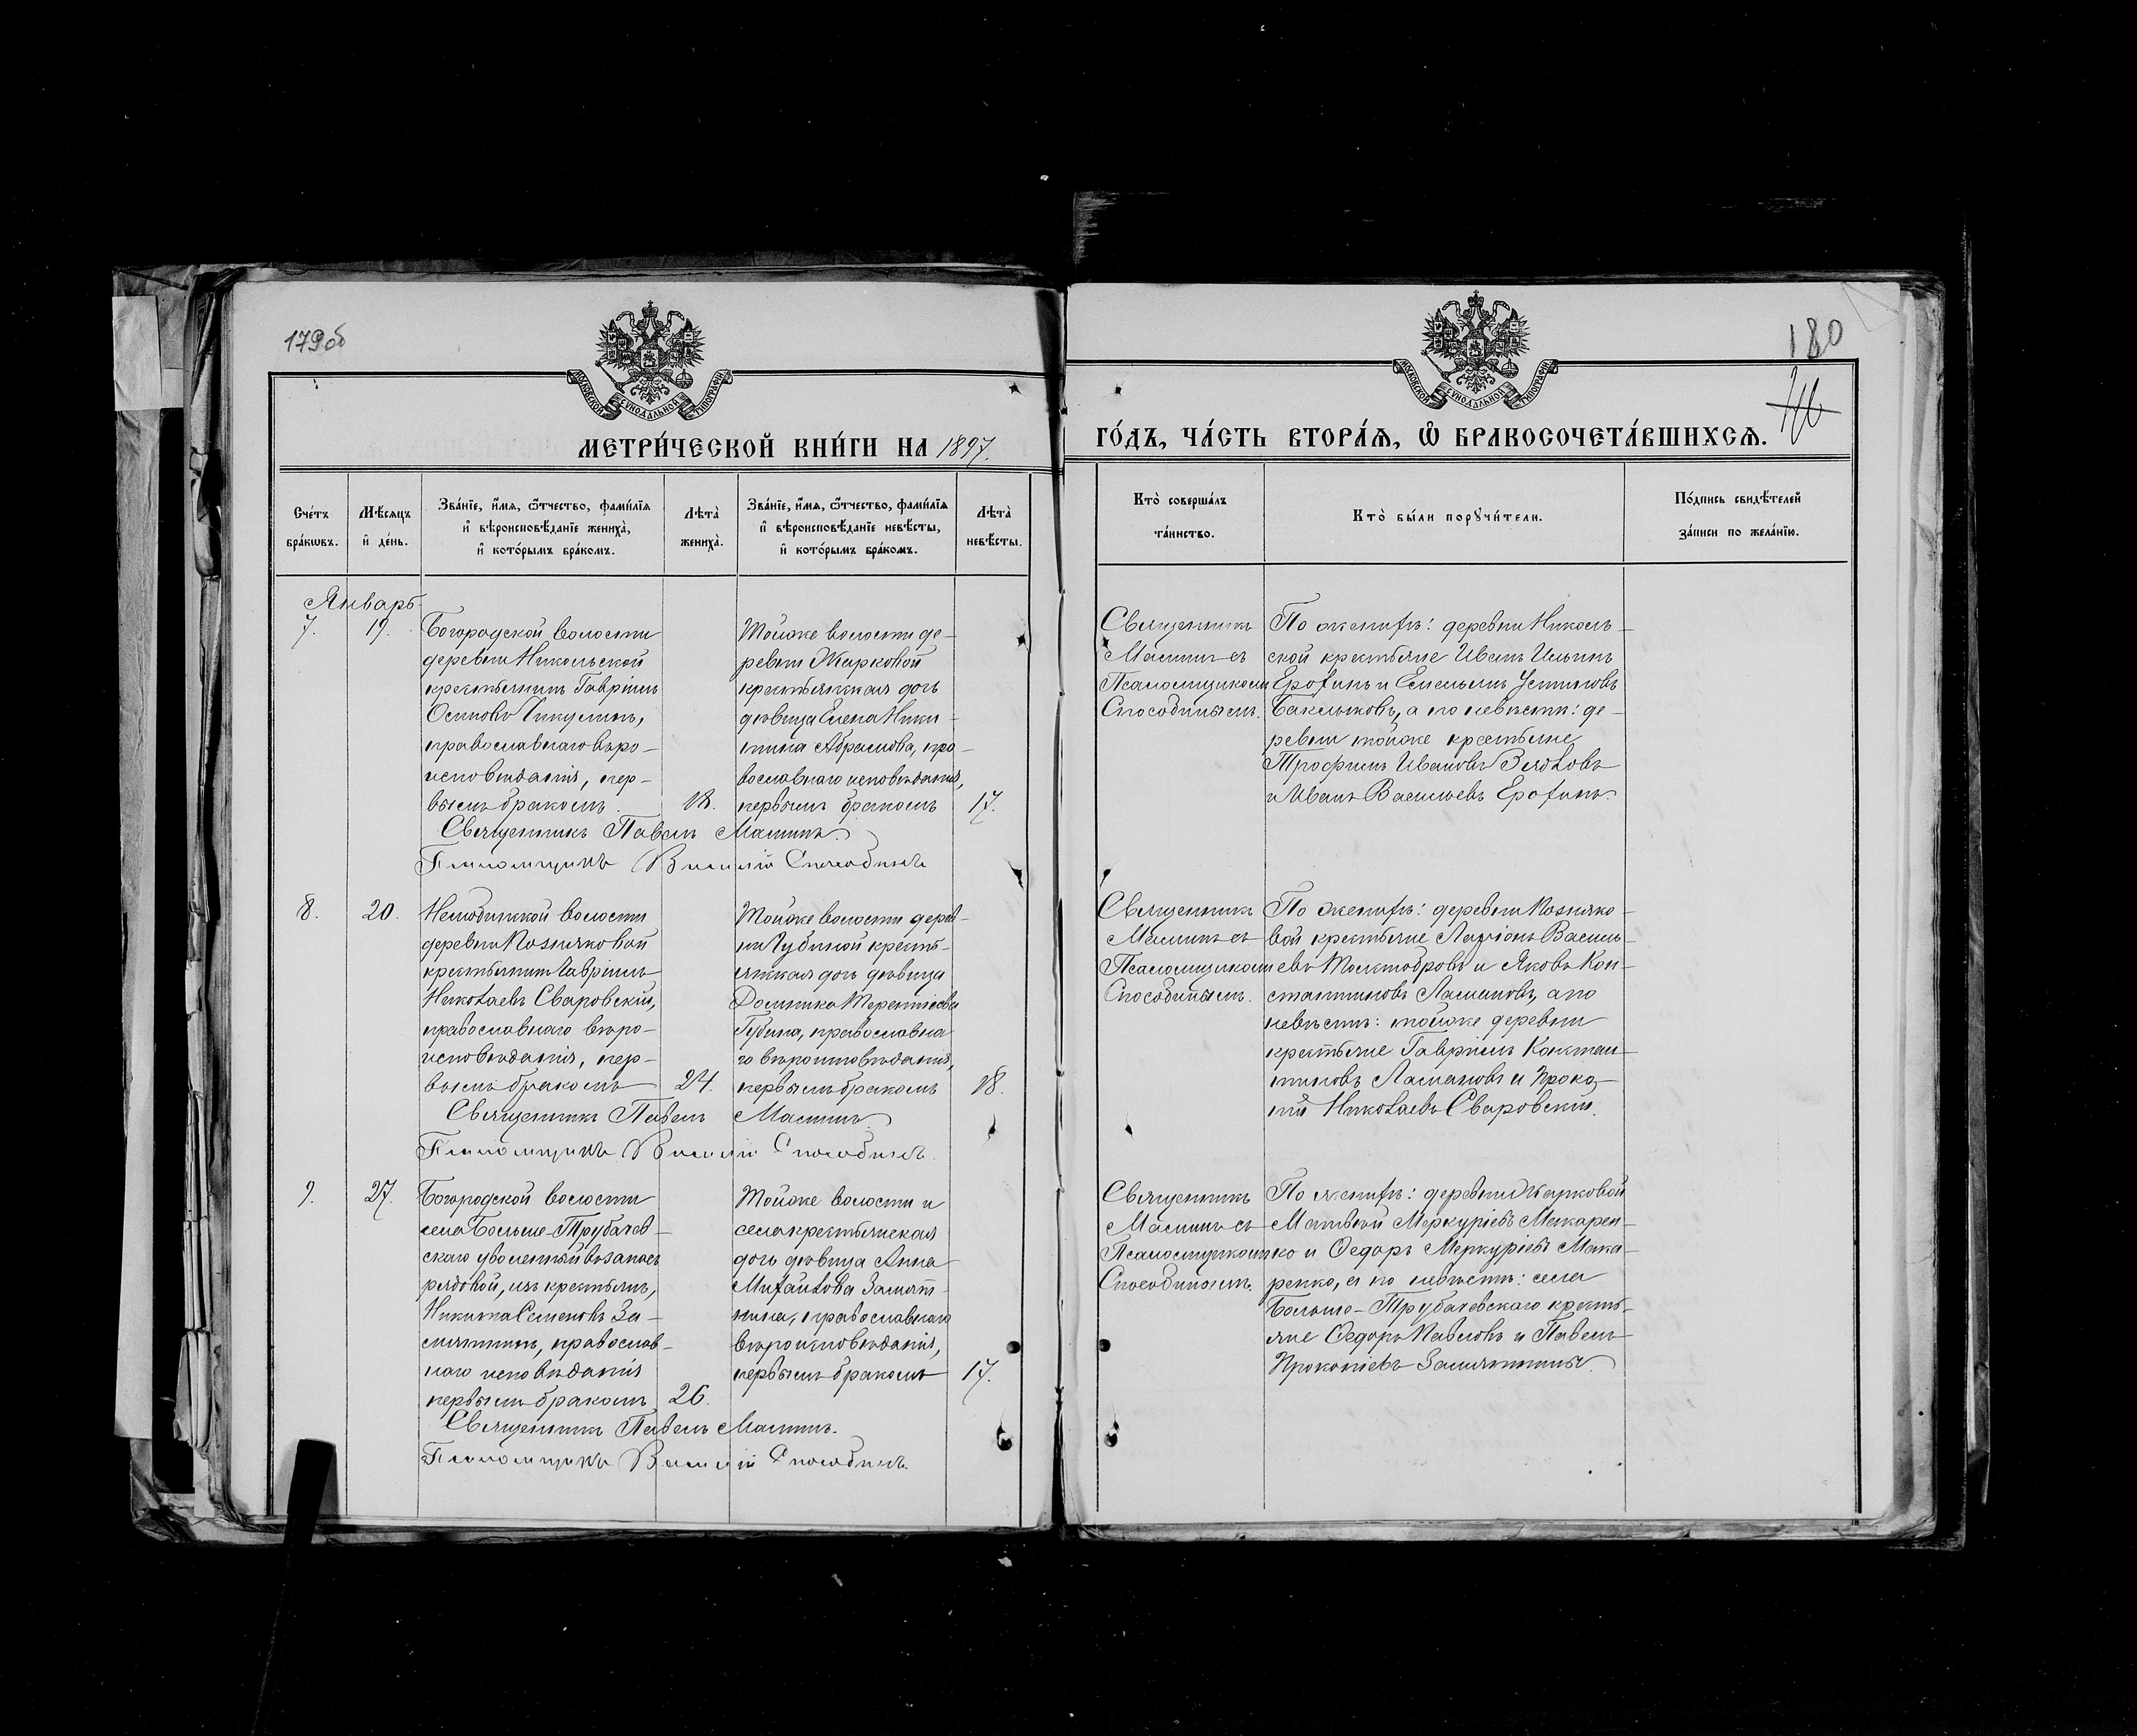 179об
МОСКОВСКОЙ СѴНОДАЛЬНОЙ ТИПОГРАФІИ
МЕТРИ́ЧЕСКОЙ КНИ́ГИ НА 1897.
Сче́тъ бра́кѡвъ.
Мѣ́сѧцъ и҆ де́нь.
Зва́нїе, и҆́мѧ, ѻ҆́тчество, фами́лїѧ и҆ вѣроисповѣ́данїе жениха̀, и҆ кото́рымъ бра́комъ.
Лѣта̀ жениха̀.
Зва́нїе, и҆́мѧ, ѻ҆́тчество, фами́лїѧ и҆ вѣроисповѣ́данїе невѣ́сты, и҆ кото́рымъ бра́комъ.
Лѣта̀ невѣ́сты.
Январь.
7.
19.
Богородской волости
деревни Никольской
крестьянинъ Гавріилъ
Осиповъ
православнаго веро-
исповѣданія, пер-
вымъ бракомъ.
18.
Тойже волости де-
ревни Жарковой
крестьянская дочь
дѣвица Елена Ники-
тина Абрамова, пра-
вославнаго исповѣданія,
первымъ бракомъ
17.
Священникъ Павелъ Маминъ.
Псаломщикъ Василій Способинъ
8.
20.
Нелюбинской волости
деревни Позняковой
крестьянинъ Гавріилъ
Николаевъ Сваровскій,
православнаго веро-
исповѣданія, пер-
вымъ бракомъ
24.
Тойже волости дерев-
ни Губиной кресть-
янская дочь дѣвица
Домника Терентіева
Губина, православна-
го вероисповѣданія,
первымъ бракомъ
18.
Священникъ Павелъ Маминъ.
Псаломщикъ Василій Способинъ.
9.
27.
Богородской волости
села Больше-Трубачев-
скаго уволенный въ запасъ
рядовой, изъ крестьянъ,
Никита Семеновъ За-
мятинъ, православ-
наго исповѣданія
первымъ бракомъ
26.
Тойже волости и
села крестьянская
дочь дѣвица Анна
Михайлова Замят-
нина, православнаго
вероисповѣданія,
первымъ бракомъ
17.
Священникъ Павелъ Маминъ.
Псаломщикъ Василій Способинъ.
180
МОСКОВСКОЙ СѴНОДАЛЬНОЙ ТИПОГРАФІИ
ГО́ДЪ, ЧА́СТЬ ВТОРА́Ѧ, Ѡ҆ БРАКОСОЧЕТА́ВШИХСѦ.
Кто̀ соверша́лъ та́инство.
Кто̀ бы́ли порꙋчи́тели.
По́дпись свидѣ́телей за́писи по жела́нїю.
Священникъ
Мамин съ
Псаломщикомъ
Способинымъ.
По женихѣ: деревни Николь-
ской крестьяне Иванъ Ильинъ
Ерохинъ и Емельянъ Устиновъ
Баклыковъ, а по невѣсти: де-
ревни тойже крестьяне
Трофимъ Ивановъ
и Иванъ Васильевъ Ерохинъ.
Священникъ
Мамин съ
Псаломщикомъ
Способинымъ.
По женихѣ: деревни Позняко-
вой крестьяне Ларіонъ Василь-
евъ и Яковъ Кон-
стантиновъ Ламановъ, а по
невѣсти: тойже деревни
крестьяне Гавріилъ Констан-
тиновъ Ламановъ и Проко-
пій Николаевъ Сваровскій.
Священникъ
Мамин съ
Псаломщикомъ
Способинымъ.
По женихѣ: деревни Жарковой
Матвѣй Меркуріевъ Макарен-
ко и Ѳедоръ Меркуріевъ Мака-
ренко, а по невѣсти: села
Больше-Трубачевскаго кресть-
яне Ѳедоръ Павловъ и Павелъ
Прокопіевъ Замятнины.